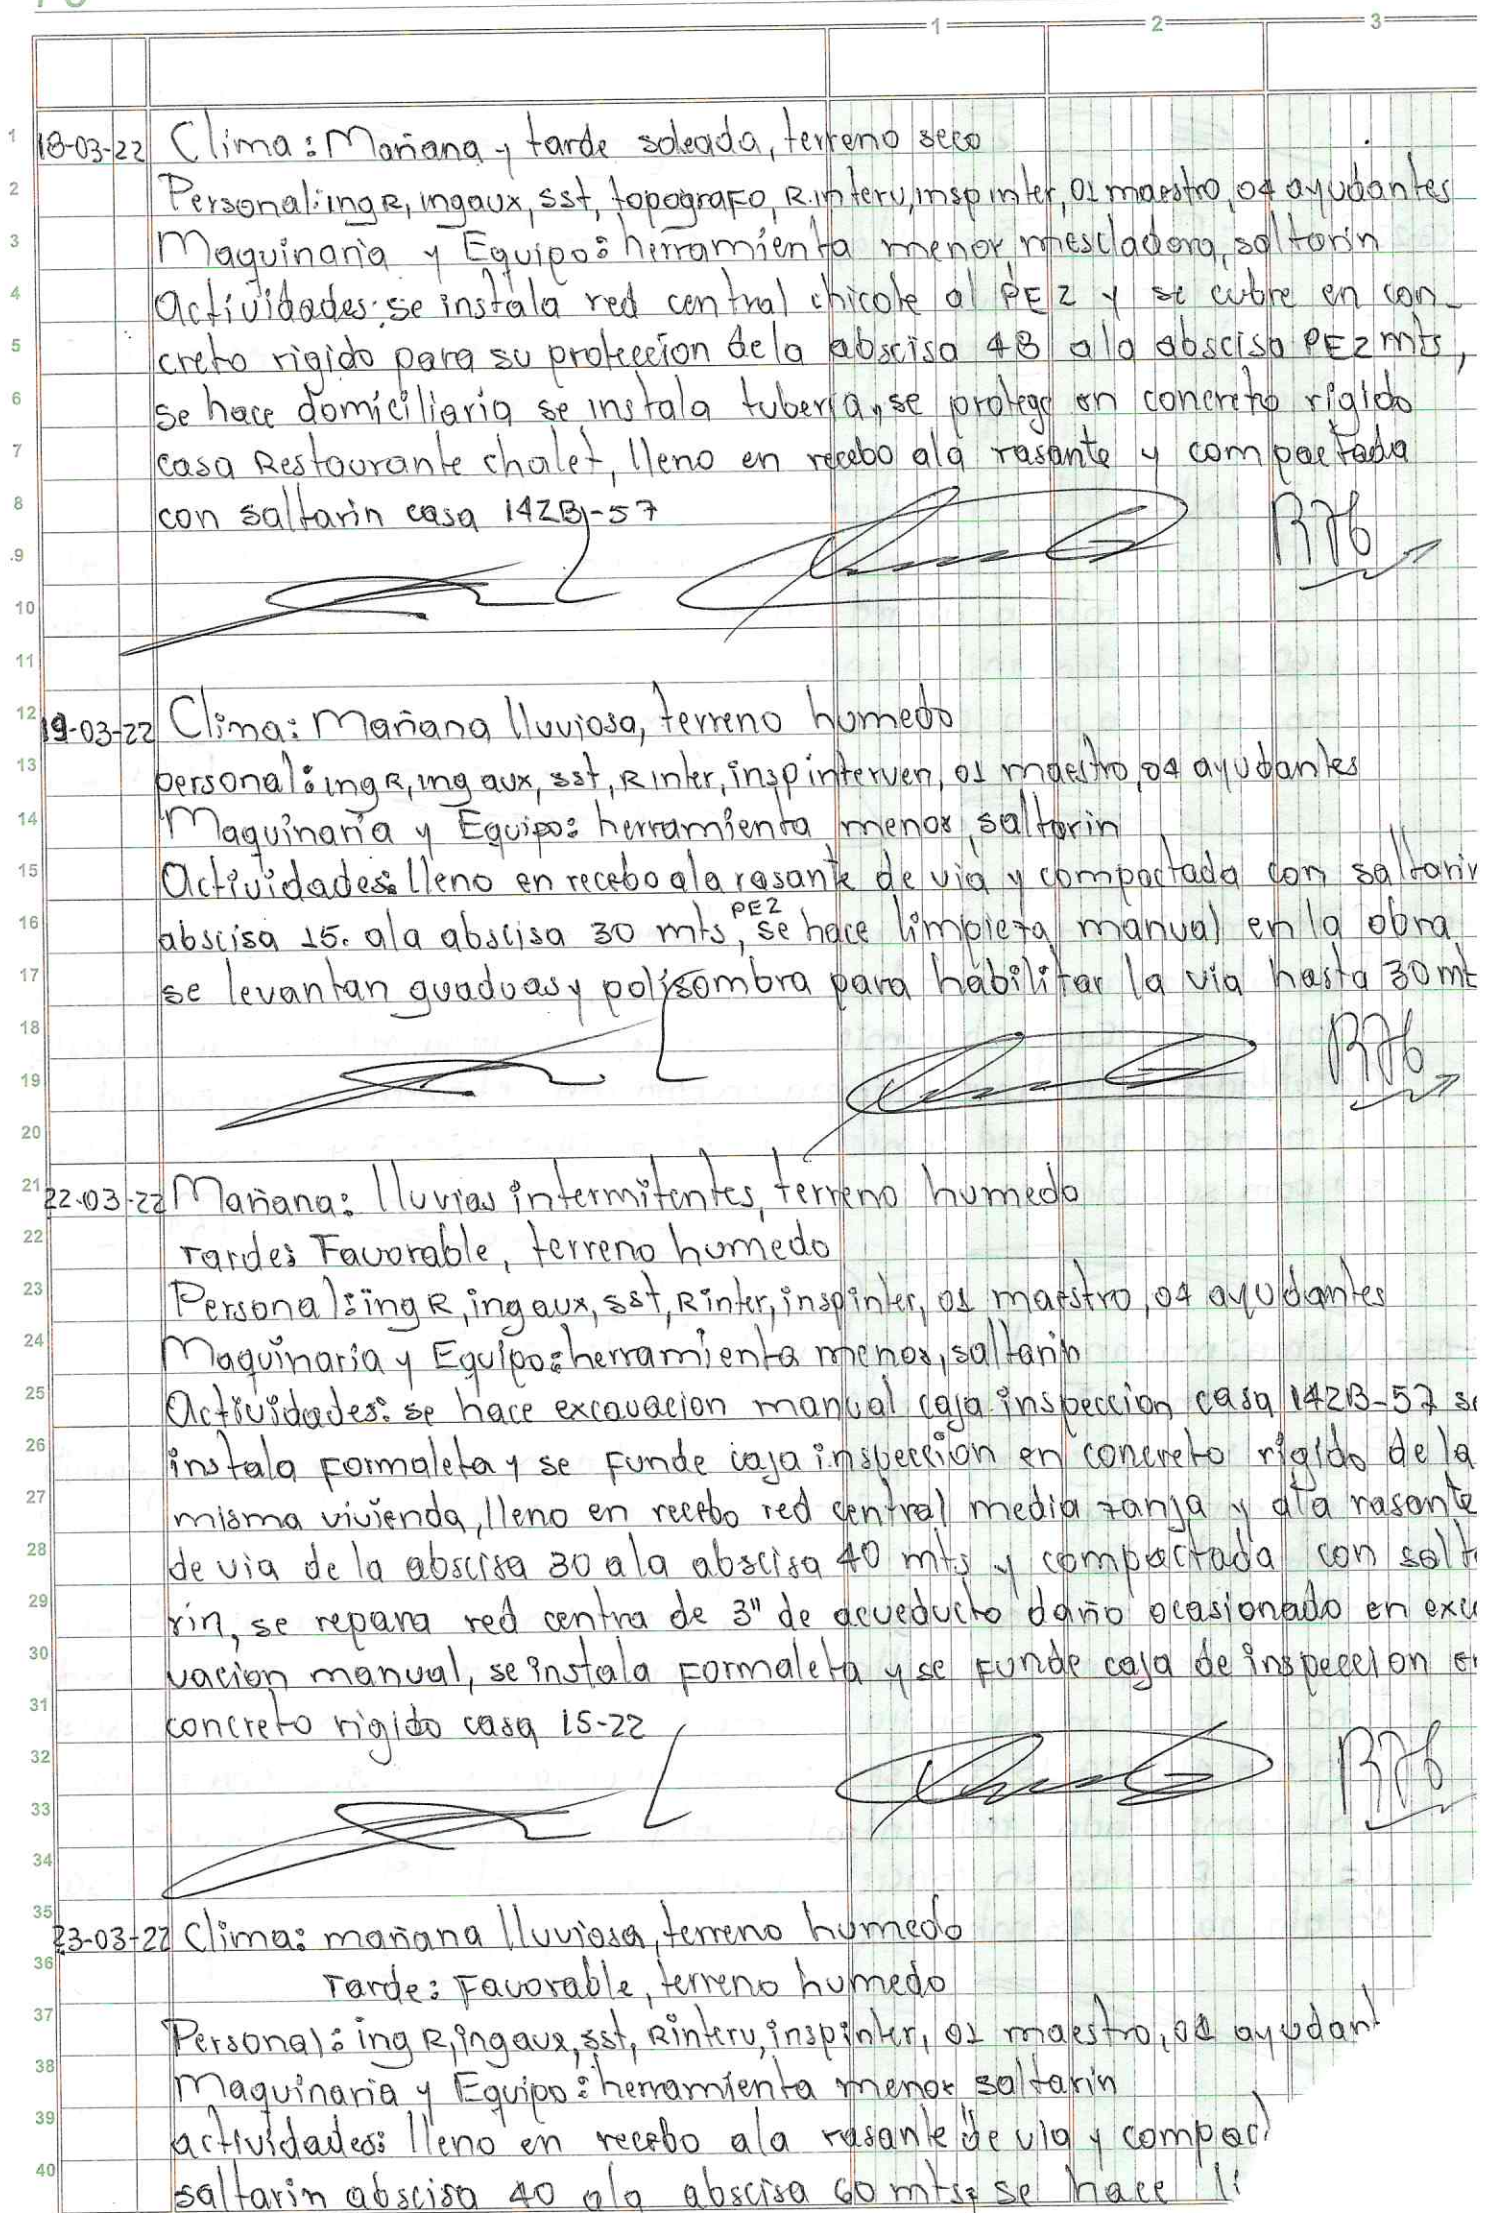 1 2 3
1 18-03-22 Clima: Mañana y tarde soleada, terreno seco
2 Personal: ing R, ing aux, sst, topografo, R. interv, insp inter, 01 maestro, 04 ayudantes
3 Maquinaria y Equipo: herramienta menor, mescladora, saltarin
4 Actividades: se instala red central chicole al PE2 y se cubre en con-
5 creto rigido para su proteccion dela abscisa 48 ala abscisa PE2 mts,
6 se hace domiciliaria se instala tuberia, se protege en concreto rigido
7 casa Restaurante chalet, lleno en recebo ala rasante y compactada
8 con saltarin casa 142B-57
9
10
11
12 19-03-22 Clima: Mañana lluviosa, terreno humedo
13 personal: ing R, ing aux, sst, R inter, insp interven, 01 maestro, 04 ayudantes
14 Maquinaria y Equipo: herramienta menor, saltarin
15 Actividades: lleno en recebo ala rasante de via y compactada con saltarin
PE2
16 abscisa 15. ala abscisa 30 mts, se hace limpieza manual en la obra
17 se levantan guaduas y polisombra para habilitar la via hasta 30 mt
18
19
20
21 22-03-22 Mañana: lluvias intermitentes, terreno humedo
22 Tarde: Favorable, terreno humedo
23 Personal: ing R, ing aux, sst, R inter, insp inter, 01 maestro, 04 ayudantes
24 Maquinaria y Equipo: herramienta menor, saltarin
25 Actividades: se hace excavacion manual caja inspeccion casa 142B-57 se
26 instala Formaleta y se Funde caja inspeccion en concreto rigido de la
27 misma vivienda, lleno en recebo red central media zanja y ala rasante
28 de via de la abscisa 30 ala abscisa 40 mts y compactada con salta
29 rin, se repara red centra de 3" de acueducto daño ocasionado en exca
30 vacion manual, se instala Formaleta y se Funde caja de inspeccion en
31 concreto rigido casa 15-22
32
33
34
35 23-03-22 Clima: mañana lluviosa, terreno humedo
36 Tarde: Favorable, terreno humedo
37 Personal: ing R, ing aux, sst, R interv, insp inter, 01 maestro, 04 ayudant
38 Maquinaria y Equipo: herramienta menor saltarin
39 actividades: lleno en recebo ala rasante de via y compac
40 saltarin abscisa 40 ala abscisa 60 mts, se hace li